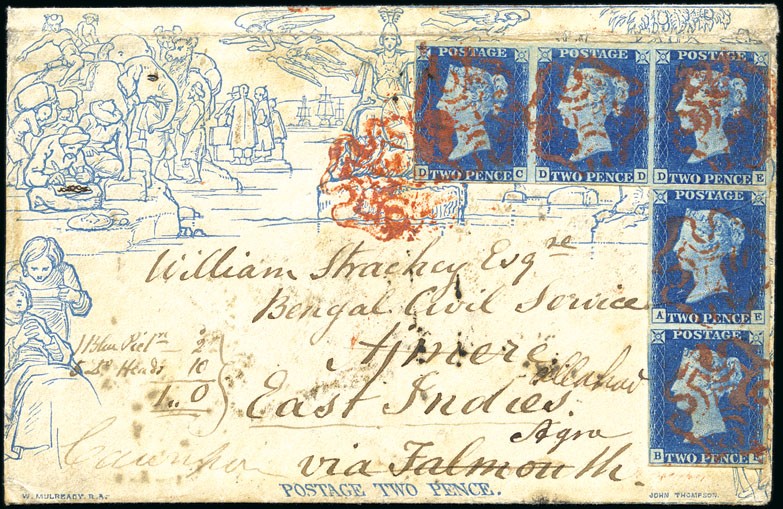 POSTAGE POSTAGE POSTAGE
D TWO PENCE C D TWO PENCE D D TWO PENCE E
POSTAGE
A TWO PENCE E
POSTAGE
B TWO PENCE E
William Strachey Esqre
Bengal Civil Service
Ajmere
East Indies.
Agra
via Falmouth.
1 Blue 2
5 Do Heads 10
1..0
Cawnpore
POSTAGE TWO PENCE.
W. MULREADY. R.A.
JOHN THOMPSON.